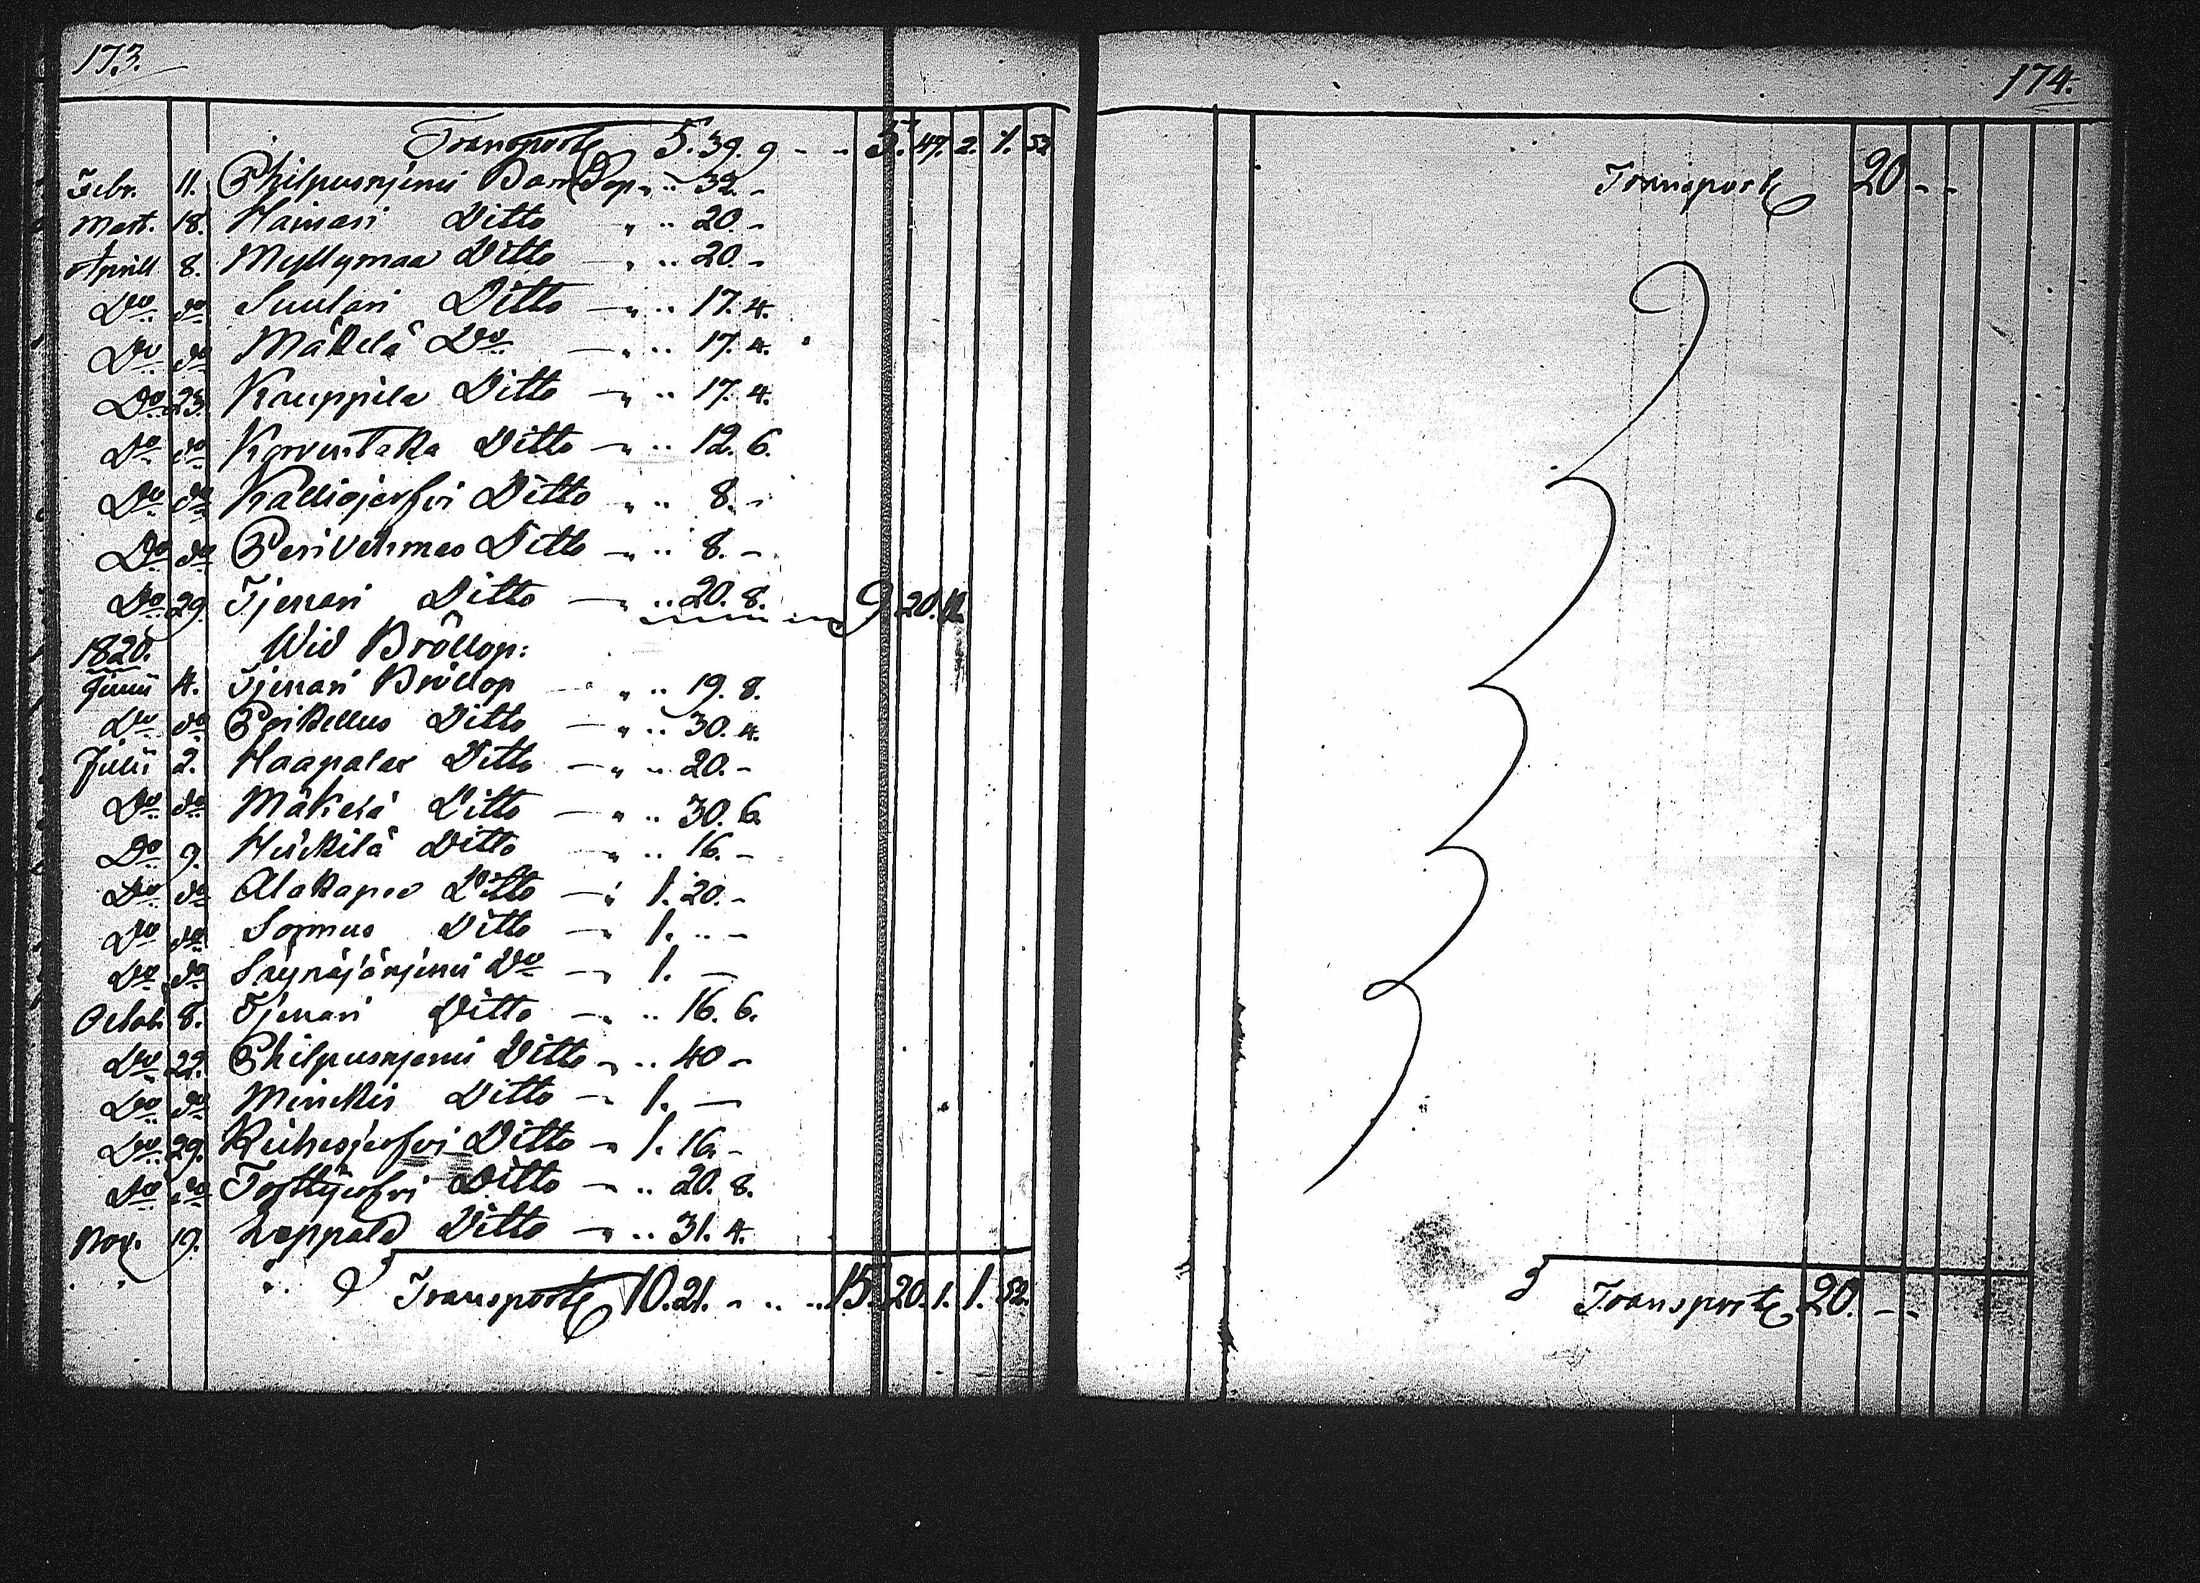 173.
Transport 5. 39. 9 - - 5. 47. 2. 1. 52
Febr. 11. Philpusnjemi BarnDop „ .. 32. -
Mart. 18. Hainari Ditto „ .. 20. -
Aprill 8. Myllymaa Ditto — „ .. 20. -
Do do Suutari Ditto — „ .. 17. 4.
Do do Mäkelä Do — „ .. 17. 4.
Do 23. Kauppila Ditto — „ .. 17. 4.
Do do Korventaka Ditto — „ .. 12. 6.
Do do Kalliojerfvi Ditto „ .. 8. -
Do do Ditto — „ .. 8. -
Do 29. Tjenari Ditto — „ .. 20. 8. 9 20. 11.
1820. Wid Bröllop:
Junii 4. Tjenari Bröllop - „ .. 19. 8.
Do do Poikellus Ditto — „ .. 30. 4.
Julii 2. Haapalax Ditto — „ .. 20. -
Do do Mäkelä Ditto — „ .. 30. 6.
Do 9. Heickilä Ditto — „ .. 16. -
Do do Alakapee Ditto — „ 1. 20. -
Do do Sormus Ditto — „ 1. .. -
Do do Säynäjärjemi Do — „ 1. —
Octob. 8. Tjenari Ditto — „ .. 16. 6.
Do 22. Philpusnjemi Ditto — „ .. 40 -
Do do Minckis Ditto — „ 1. —
Do 29. Riihesjerfvi Ditto — „ 1. 16. -
Do do Ditto — „ .. 20. 8.
Nov. 19. Leppälä Ditto — „ .. 31. 4.
Transport 10. 21. - .. .. 15. 20. 1. 1. 52.
174.
Transport 20 - -
Transport 20. - -